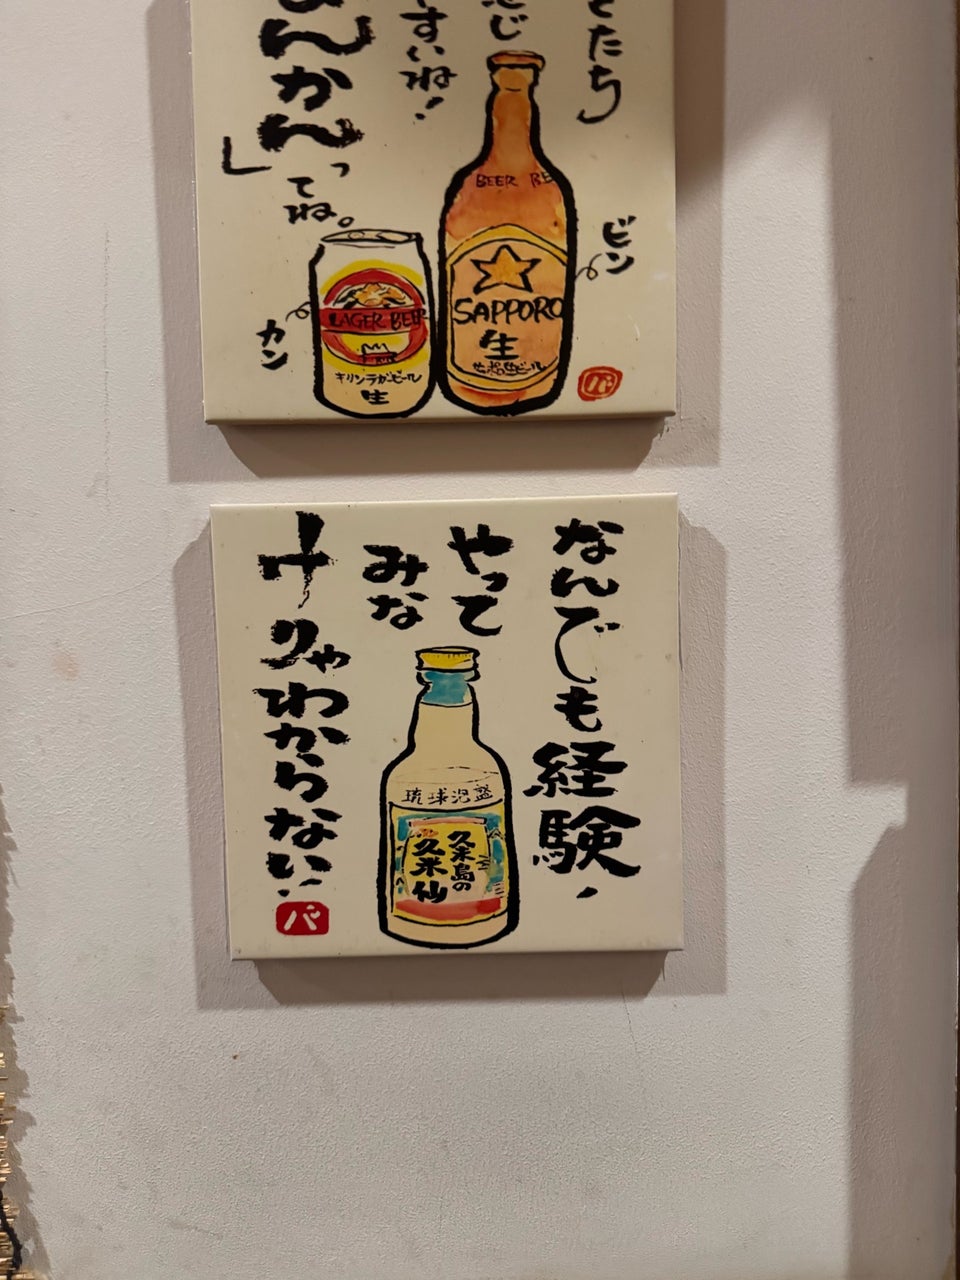 たち
感じ
すいね！
かん」
ってね。
BEER BE
ビン
SAPPORO
生
LAGER BEER
カン
キリンラガービール
生
バ
なんでも経験！
やって
みな
けりゃわからない！！
琉球泡盛
久米島の
久米仙
バ